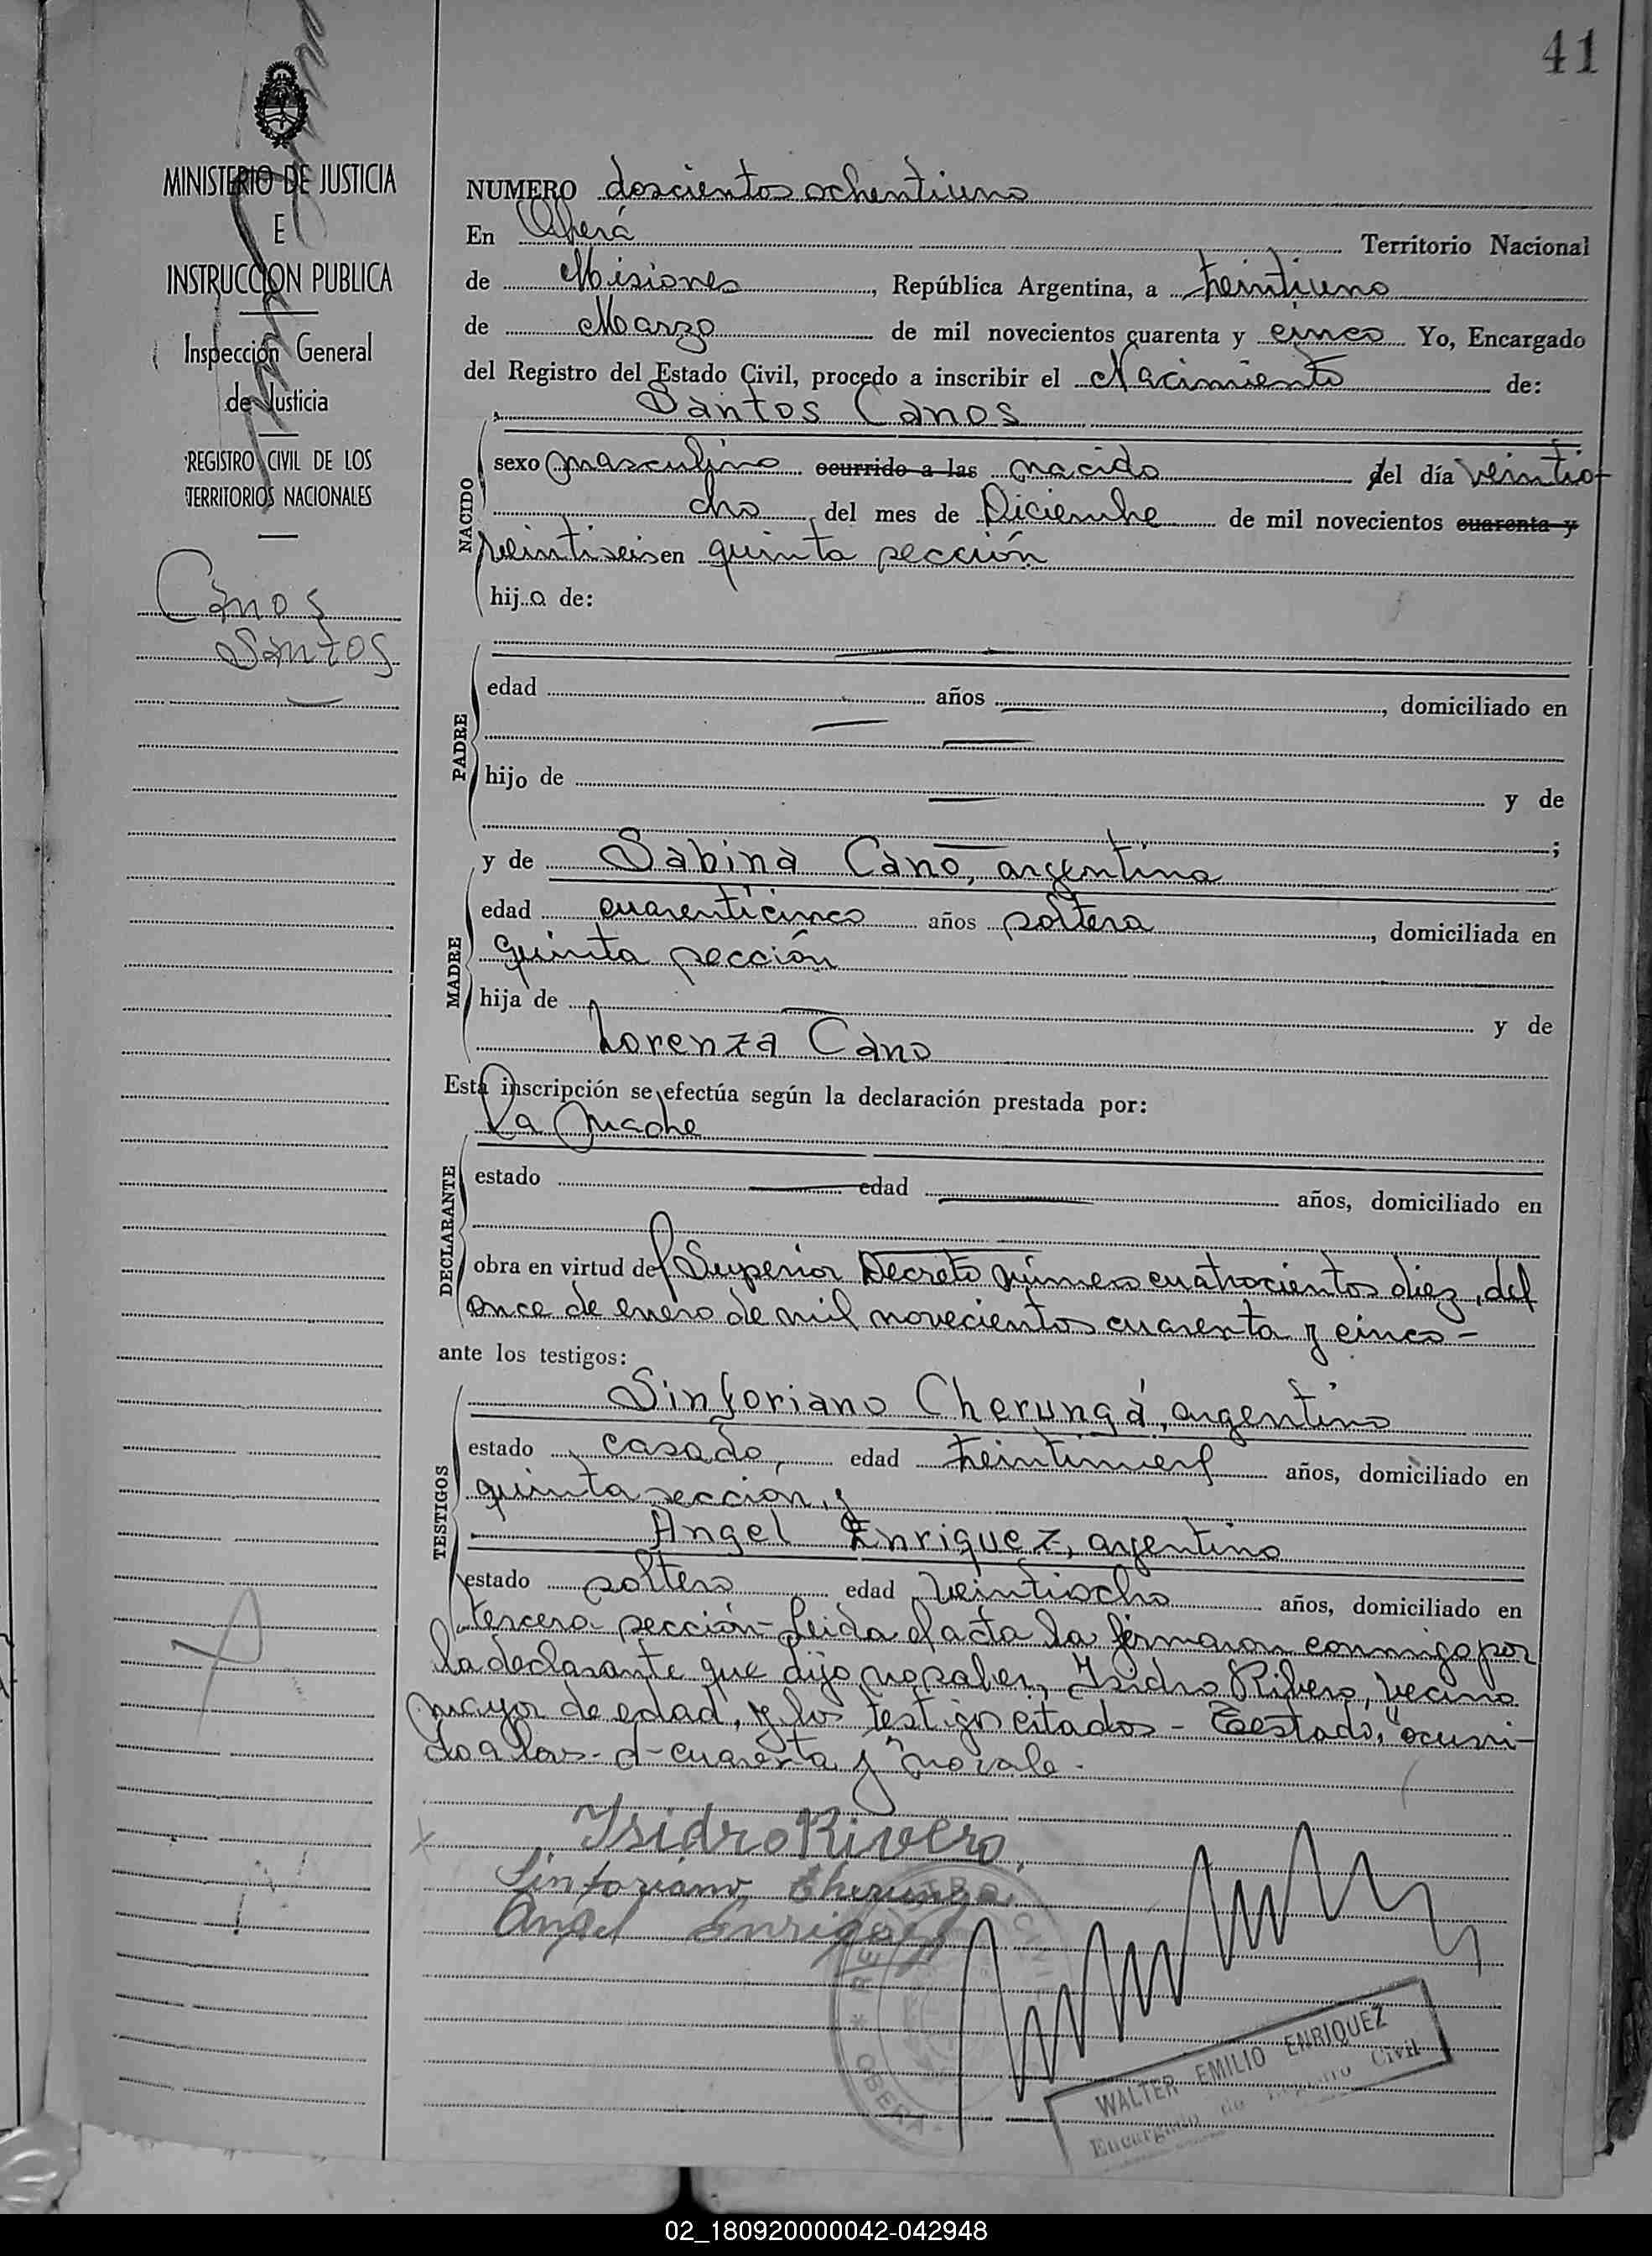 41
MINISTERIO DE JUSTICIA
E
INSTRUCCION PUBLICA
Inspección General
de Justicia
REGISTRO CIVIL DE LOS
TERRITORIOS NACIONALES
Canos
Santos
NUMERO doscientos ochentiuno
En Oberá Territorio Nacional
de Misiones, República Argentina, a treintiuno
de Marzo de mil novecientos cuarenta y cinco Yo, Encargado
del Registro del Estado Civil, procedo a inscribir el Nacimiento de:
Santos Canos
NACIDO
sexo masculino ocurrido a las nacido del día veintio-
cho del mes de Diciembre de mil novecientos cuarenta y
veintiseis en quinta sección
hijo de:
PADRE
edad años, domiciliado en
hijo de y de
;
MADRE
y de Sabina Cano, argentina
edad cuarenticinco años soltera, domiciliada en
quinta sección
hija de y de
Lorenza Cano
Esta inscripción se efectúa según la declaración prestada por:
La Madre
DECLARANTE
estado edad años, domiciliado en
obra en virtud del Superior Decreto número cuatrocientos diez, del
once de enero de mil novecientos cuarenta y cinco-
ante los testigos:
TESTIGOS
Sinforiano Cherungá, argentino
estado casado, edad treintinueve años, domiciliado en
quinta sección, y
Angel Enriquez, argentino
estado soltero edad veintiocho años, domiciliado en
tercera sección- Leida el acta la firmaron conmigo por
la declarante que dijo no saber, Isidro Ribero, vecino
mayor de edad, y los testigos citados - Testado: "ocurri-
do a las - d - cuarenta y" no vale.
Isidro Rivero
Sinforiano Cherunga
Angel Enriquez
REGISTRO CIVIL
* OBERA
WALTER EMILIO ENRIQUEZ
Encargado de Registro Civil
02_180920000042-042948